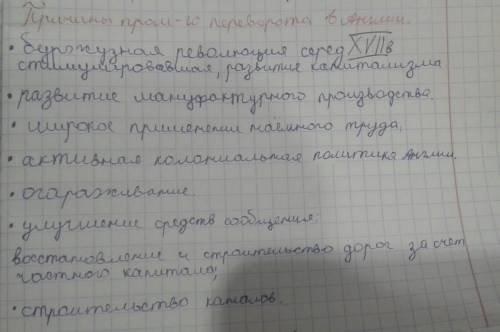 Причины пром-го переворота в Англии.
• буржуазная революция серед XVII в
стимулировавшая, развитие капитализма
• развитие мануфактурного производства.
• широкое применении наёмного труда,
• активная колониальная политика Англии.
• огараживание.
• улучшение средств сообщения:
восстановление и строительство дорог за счет
частного капитала;
• строительство каналов.